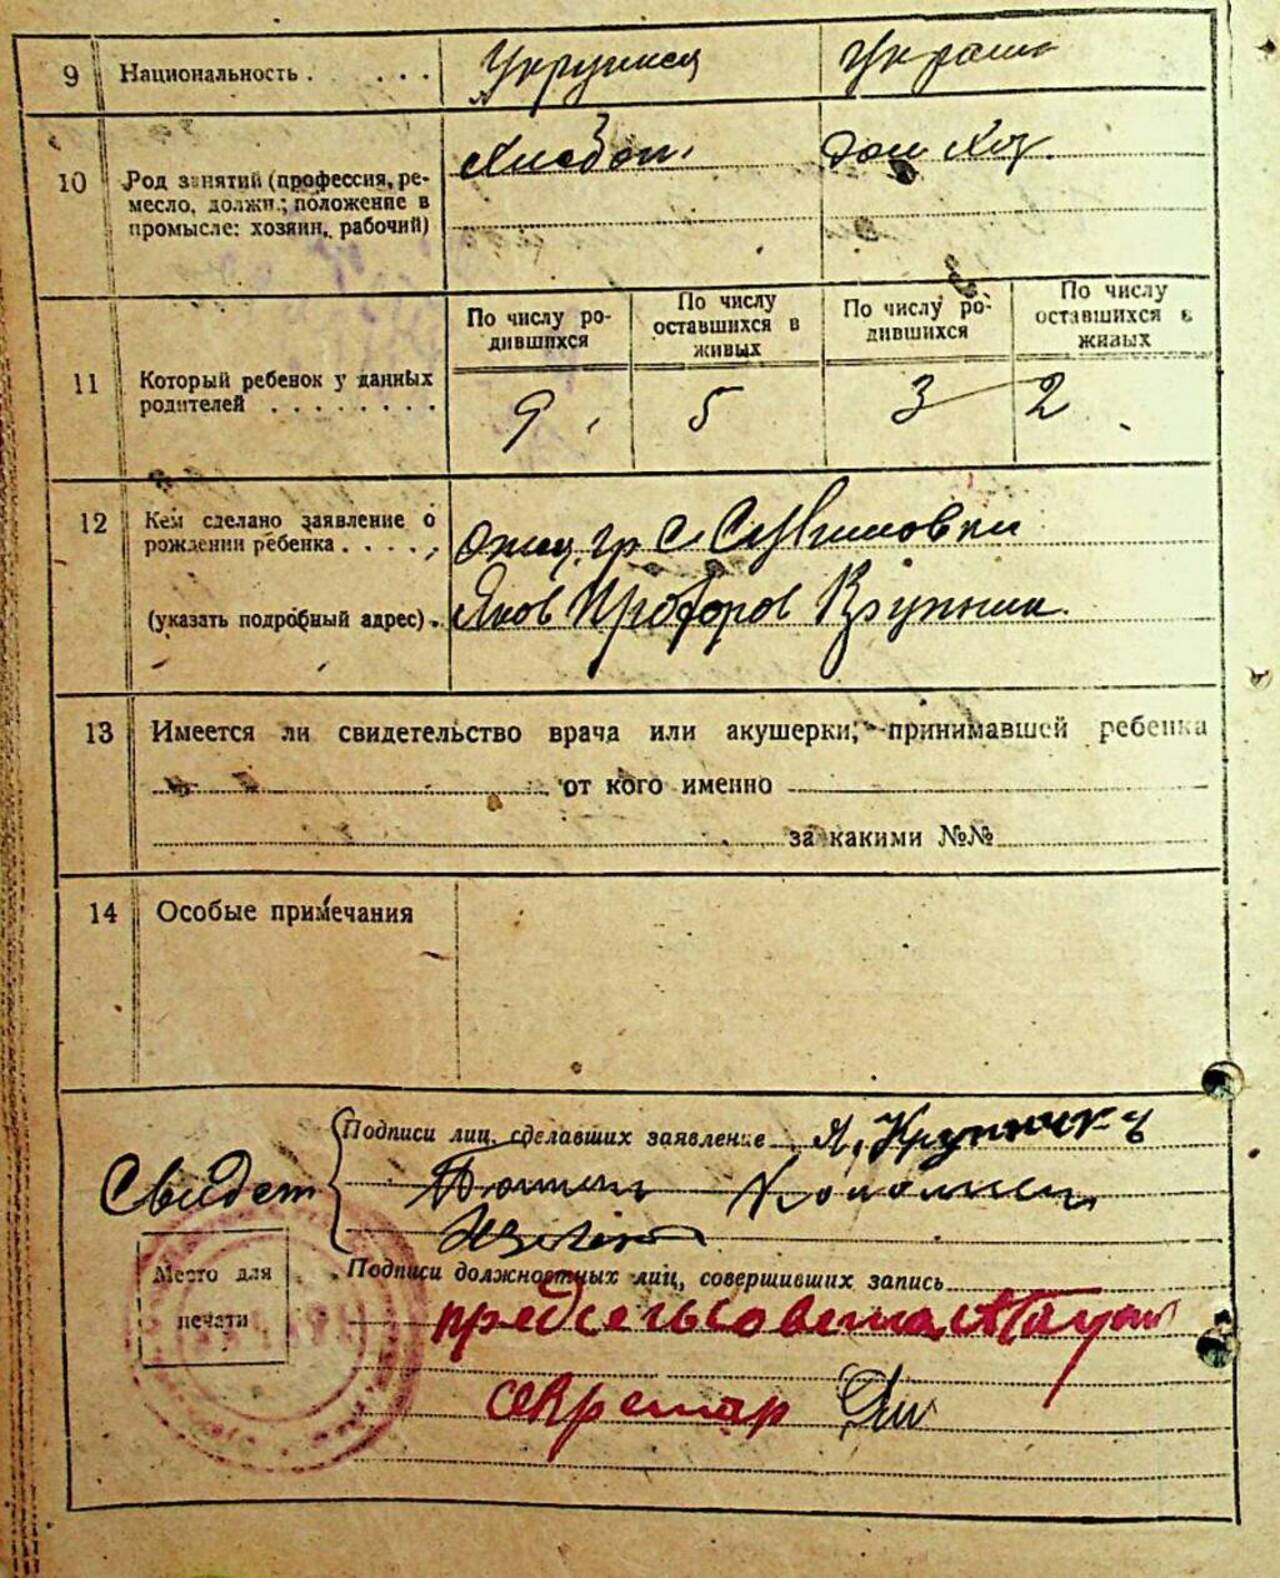 9 Национальность . . . .
10 Род занятий (профессия, ре-
месло, должн.; положение в
промысле: хозяин, рабочий)
Хлебоп.
дом Хоз.
11 Который ребенок у данных
родителей . . . . . . . .
По числу ро-
дившихся
По числу
оставшихся в
живых
По числу ро-
дившихся
По числу
оставшихся в
живых
9 5 3 2
12 Кем сделано заявление о
рождении ребенка . . . .
(указать подробный адрес) .
гр. с.
Яков
13 Имеется ли свидетельство врача или акушерки, принимавшей ребенка
от кого именно
за какими №№
14 Особые примечания
Подписи лиц, сделавших заявление
Свидет
Место для
печати
Подписи должностных лиц, совершивших запись
предсельсовета
секретар